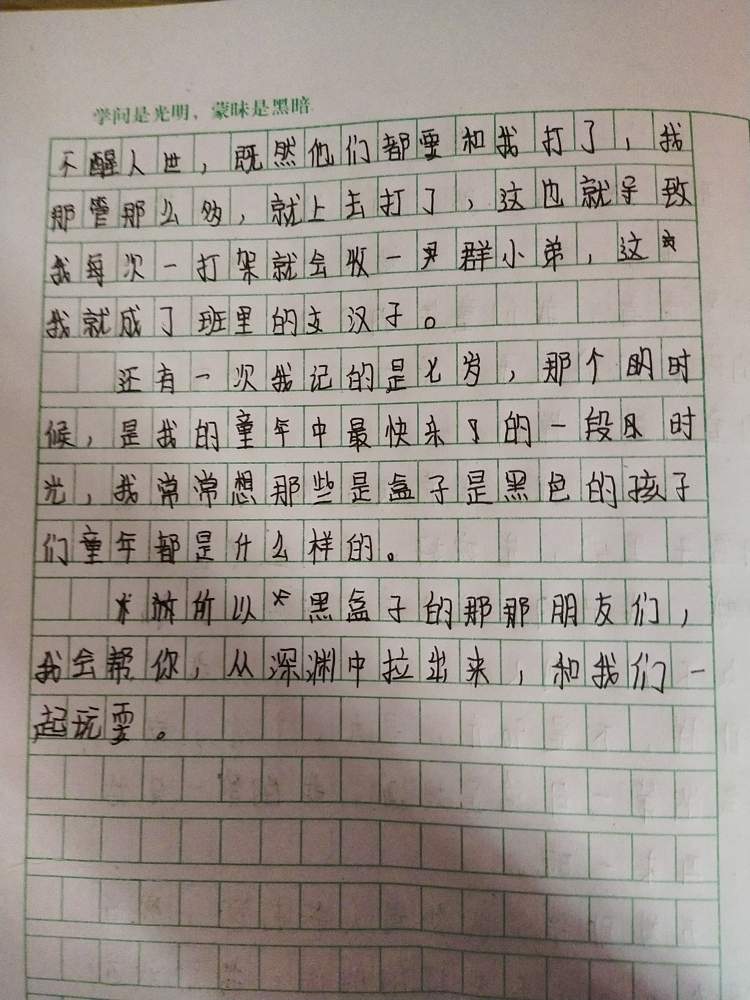 学问是光明，蒙昧是黑暗
不醒人世，既然他们都要和我打了，我
那管那么多，就上去打了，这也就导致
我每次一打架就会收一群小弟，这
我就成了班里的女汉子。
还有一次我记的是七岁，那个时
候，是我的童年中最快乐的一段时
光，我常常想那些是盒子是黑色的孩子
们童年都是什么样的。
所以黑盒子的那那朋友们，
我会帮你，从深渊中拉出来，和我们一
起玩耍。